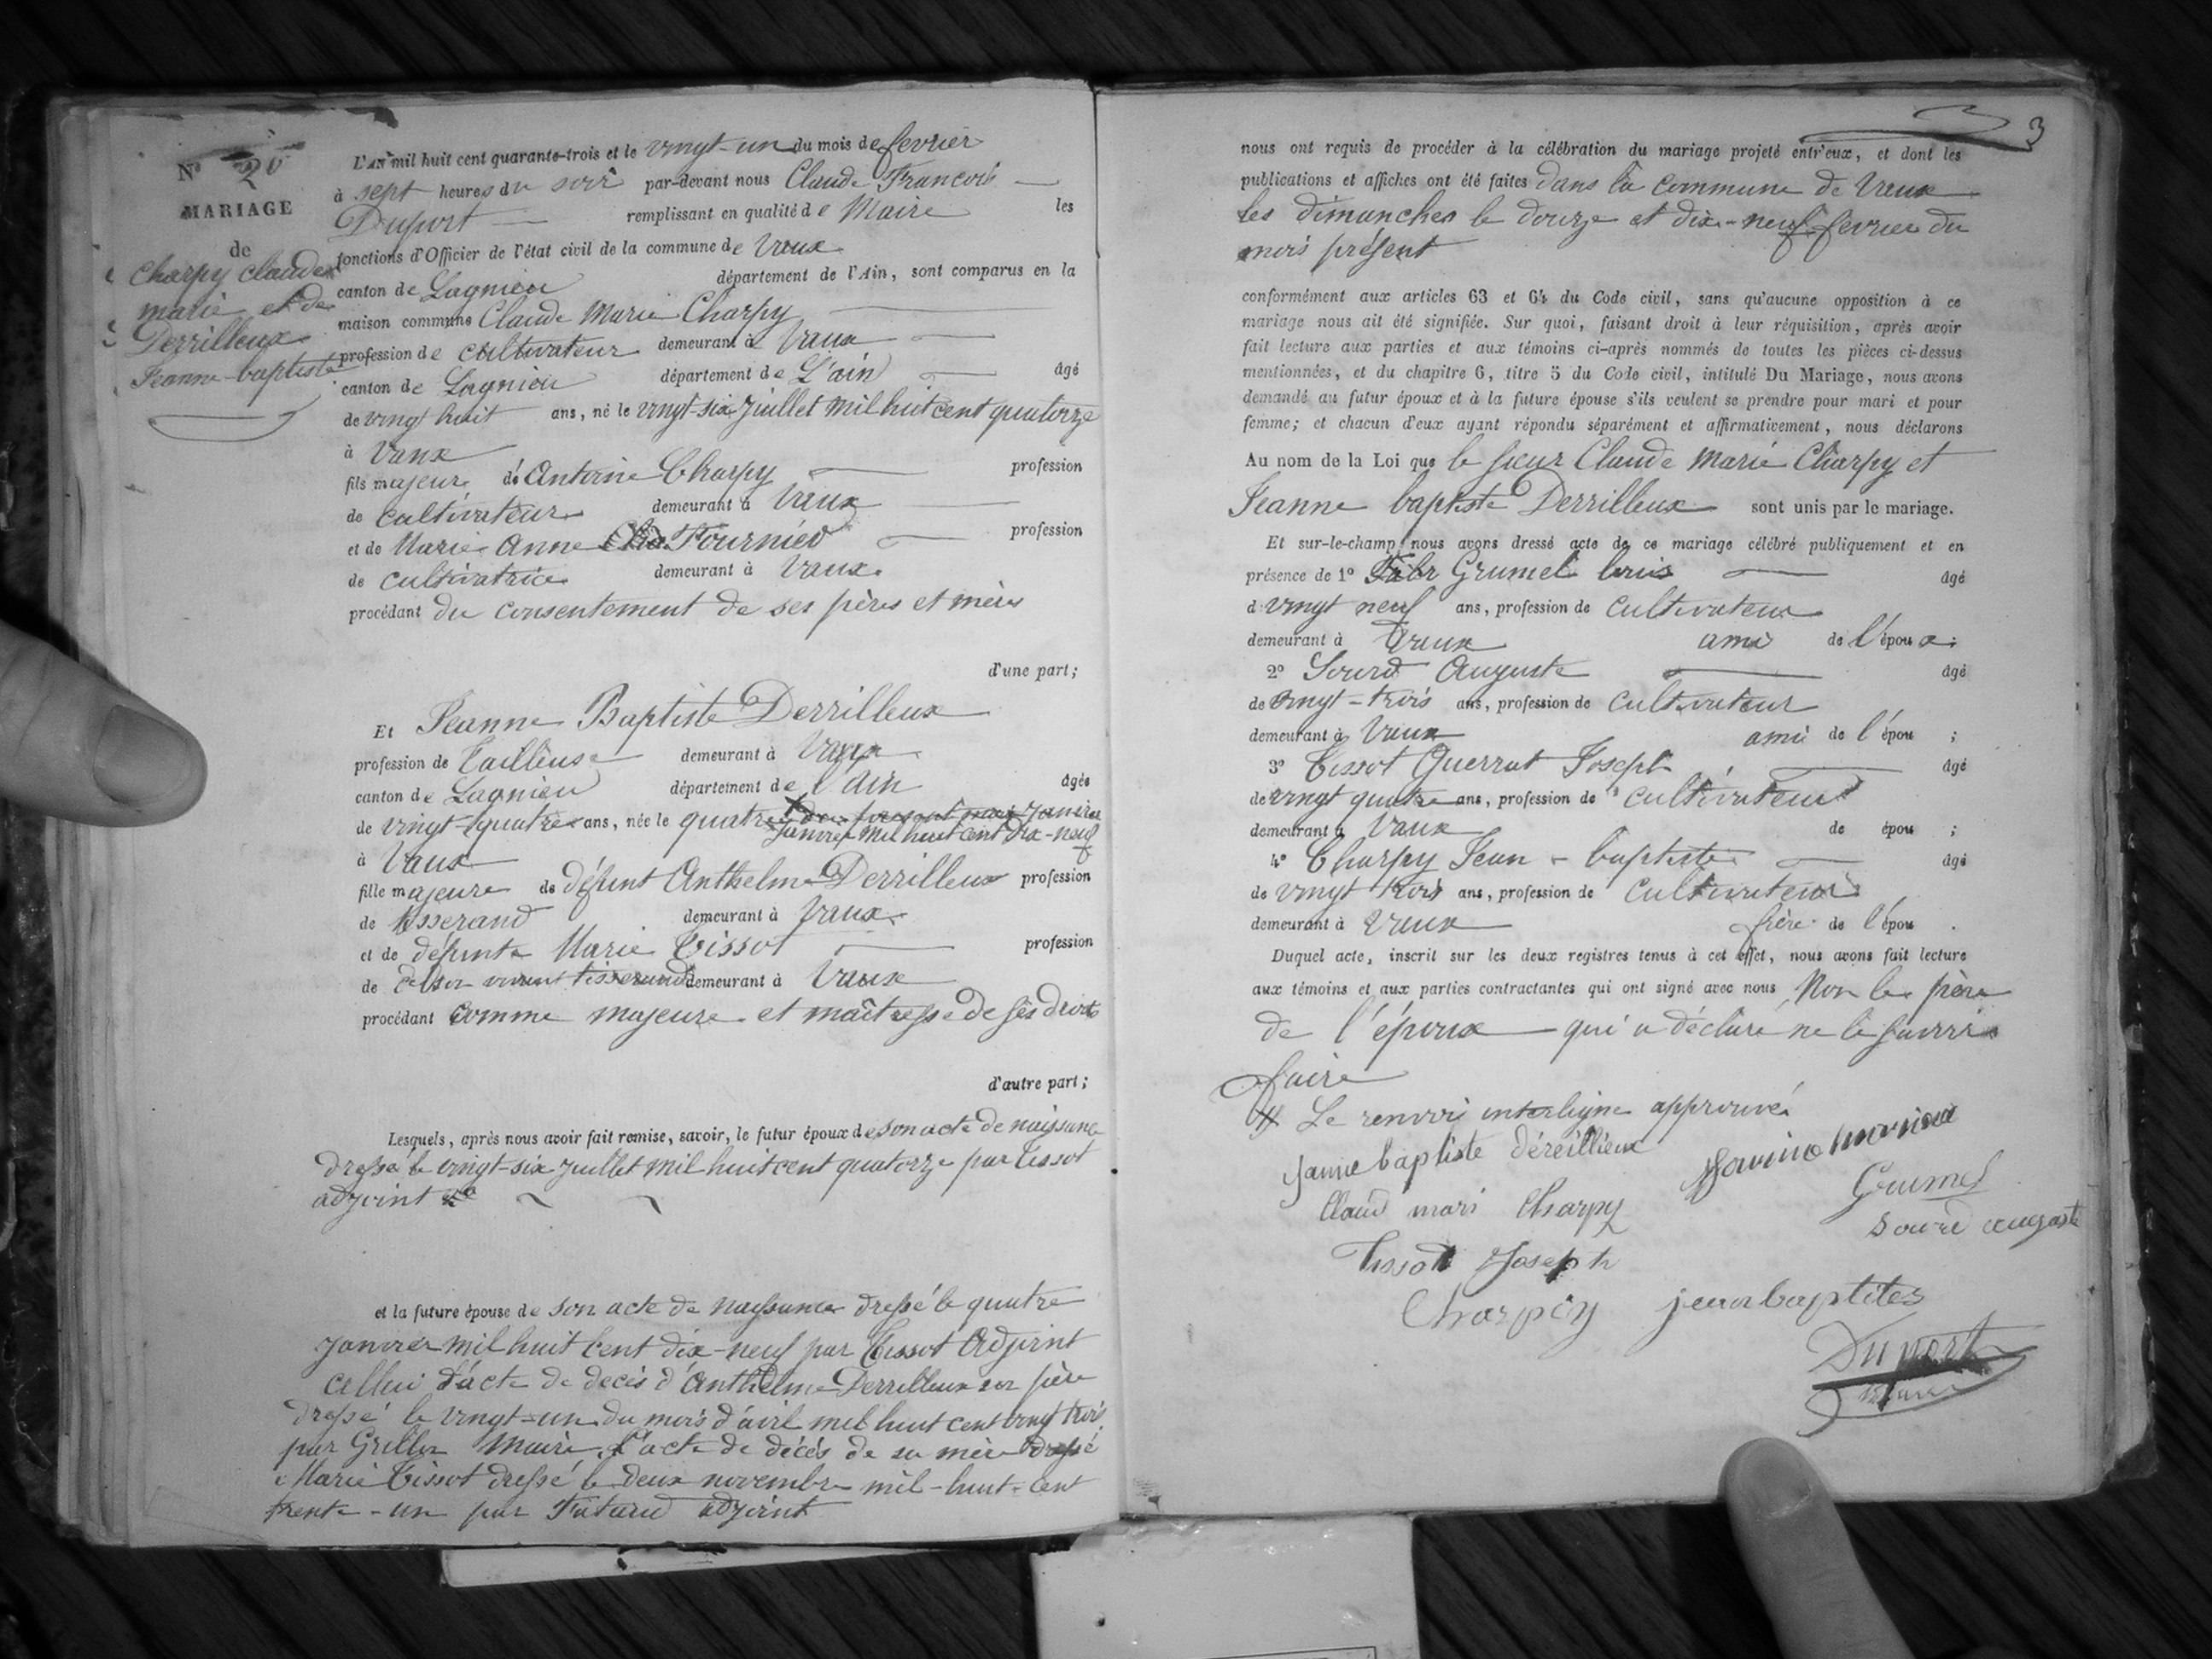 N° 20
MARIAGE
de
Charpy claude
marie et de
Derrilleux
Jeanne-baptiste
L'AN mil huit cent quarante-trois et le vingt-un du mois de fevrier
à sept heures du soir par-devant nous Claude Francois
Duport remplissant en qualité de Maire les
fonctions d'Officier de l'état civil de la commune de Vaux
canton de Lagnieu département de l'Ain, sont comparus en la
maison commune Claude Marie Charpy
profession de cultivateur demeurant à Vaux
canton de Lagnieu département de L'ain âgé
de vingt huit ans, né le vingt-six Juillet mil huit cent quatorze
à Vaux
fils majeur de Antoine Charpy profession
de cultivateur demeurant à Vaux
et de Marie Anne Fournier profession
de cultivatrice demeurant à Vaux
procédant du consentement de ses pères et mères
d'une part;
Et Jeanne Baptiste Derrilleux
profession de Tailleuse demeurant à Vaux
canton de Lagnieu département de l'ain âgée
de vingt-quatre ans, née le quatre
Janvier mil huit cent dix-neuf
à Vaux
fille majeure de défunt Anthelme Derrilleux profession
de tisserand demeurant à Vaux
et de défunte Marie Tissot profession
de demeurant à Vaux
procédant comme majeure et maîtresse de ses droits
d'autre part;
Lesquels, après nous avoir fait remise, savoir, le futur époux de son acte de naissance
dressé le vingt-six Juillet mil huit cent quatorze par Tissot
adjoint
et la future épouse de son acte de naissance dressé le quatre
Janvier mil huit cent dix-neuf par Tissot Adjoint
cellui d'acte de decès d'Anthelme Derrilleux son père
dressé le vingt-un du mois d'avril mil huit cent vingt trois
par Grillon Maire, l'acte de décès de sa mère dressé
Marie Tissot dressé le deux novembre mil-huit-cent
trente-un par adjoint
3
nous ont requis de procéder à la célébration du mariage projeté entr'eux, et dont les
publications et affiches ont été faites dans la commune de Vaux
les dimanches le douze et dix-neuf fevrier du
mois présent
conformément aux articles 63 et 64 du Code civil, sans qu'aucune opposition à ce
mariage nous ait été signifiée. Sur quoi, faisant droit à leur réquisition, après avoir
fait lecture aux parties et aux témoins ci-après nommés de toutes les pièces ci-dessus
mentionnées, et du chapitre 6, titre 5 du Code civil, intitulé Du Mariage, nous avons
demandé au futur époux et à la future épouse s'ils veulent se prendre pour mari et pour
femme; et chacun d'eux ayant répondu séparément et affirmativement, nous déclarons
Au nom de la Loi que le sieur Claude Marie Charpy et
Jeanne baptiste Derrilleux sont unis par le mariage.
Et sur-le-champ nous avons dressé acte de ce mariage célébré publiquement et en
présence de 1° Grumel louis âgé
d vingt neuf ans, profession de cultivateur
demeurant à Vaux ami de l'époux;
2° Sourd Auguste âgé
de vingt-trois ans, profession de cultivateur
demeurant à Vaux ami de l'épou ;
3° Tissot Guerrat Joseph âgé
de vingt quatre ans, profession de cultivateur
demeurant à Vaux de épou ;
4° Charpy Jean-baptiste âgé
de vingt trois ans, profession de cultivateur
demeurant à Vaux frère de l'épou .
Duquel acte, inscrit sur les deux registres tenus à cet effet, nous avons fait lecture
aux témoins et aux parties contractantes qui ont signé avec nous Non le père
de l'époux qui a déclaré ne le savoir
faire
Le renvoi interligne approuvé
Janne baptiste déreillieux
Claud mari Charpy
Grumel
Sourd auguste
Tissot Joseph
Charpiy jean baptites
Duport
Maire